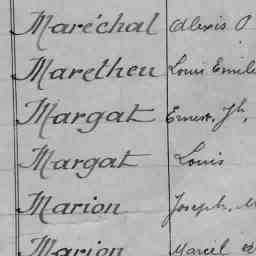 Maréchal Alexis O
Maretheu Louis Emile
Margat Ernest, Jh,
Margat Louis
Marion Joseph, M
Marion Marcel